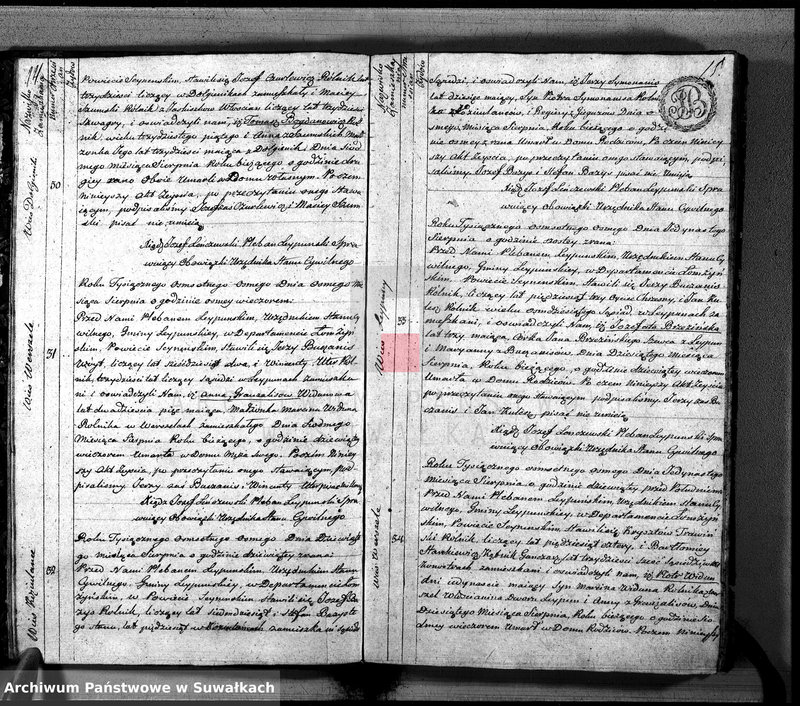 14
Powiecie Seynenskim, stawili się Jozef Czurlewicz Rolnik lat
trzydzieści liczący w Dolginikach zamieszkały i Maciey
Saumski Rolnik z Justianow Włoscian liczący lat trzydzieści
Szwagry, i oswiadczyli nam, iż Tomasz Bogdanowicz Rol
nik wieku trzydziestego piątego i Anna z Saumskich Mał
żonka Jego lat trzydzieści maiąca z Dolginik, Dnia Siód
mego miesiąca Sierpnia Roku bieżącego o godzinie dru
giey rano Oboie Umarli w Domu własnym. Poczem
ninieyszy Akt Zeyscia, po przeczytaniu onego Stawa
iącym, podpisaliśmy Jozef Czurlewicz i Maciey Saum
ski pisać nie umieią
Xiądz Jozef Łaszewski Pleban Leypunski Spra
wuiący Obowiązki Urzędnika Stanu Cywilnego
Wieś Dolginik
50
Roku Tysiącznego Osmsetnego Osmego Dnia Osmego Mie
siąca Sierpnia o godzinie osmey wieczorem
Przed Nami Plebanem Leypunskim, Urzędnikiem Stanu Cy
wilnego, Gminy Leypunskiey, w Departamencie Łomżyn
skim, Powiecie Seynenskim, Stawili się Jerzy Buzanis
liczący lat sześćdziesiąt dwa, i Wincenty Rol
nik, trzydzieści lat liczący Sąsiedzi w Leypunach zamieszka
ni i oswiadczyli Nam, iż Anna Granzalisow Widunowa
lat dwadziescia pięc maiąca, Małżonka Marcina Widuna
Rolnika w Warselach zamieszkałego Dnia Siodmego
Miesiąca Sierpnia Roku bieżącego, o godzinie dziewiątey
wieczorem Umarła w Domu Męża swego. Poczem Niniey
szy Akt Zeyscia, po przeczytaniu onego Stawaiącym, pod
pisaliśmy Jerzy zas Buzanis i Wincenty
Xiądz Jozef Łaszewski Pleban Leypunski Spra
wuiący Obowiązki Urzędnika Stanu Cywilnego
Wieś Warsele
51
Roku Tysiącznego Osmsetnego Osmego Dnia Dziewiąte
go miesiąca Sierpnia o godzinie dziewiątey zrana
Przed Nami Plebanem Leypunskim Urzędnikiem Stanu
Cywilnego, Gminy Leypunskiey, w Departamencie Łom
żynskim, w Powiecie Seynenskim Stawili się Jozef Ba
zys Rolnik, liczący lat Siedmdziesiąt i Stefan Bazys te
go stanu, lat pięćdziesiąt w zamieszkali Sąsie
Wieś
52
15.
Sąsiedzi, i oswiadczyli Nam, iż Jerzy Symonanis
lat dziesięc maiący, Syn Piotra Symonanisa Rolni
ka z Kozimlancow, i Reginy z Dnia O
smego Miesiąca Sierpnia, Roku bieżącego o godzi
nie osmey zrana Umarł w Domu Rodzicow, Po czem niniey
szy Akt Zeyscia, po przeczytaniu onego Stawaiącym, podpi
saliśmy. Jozef Bazys i Stefan Bazys pisać nie Umieią
Xiądz Jozef Łaszewski Pleban Leypunski Spra
wuiący Obowiązki Urzędnika Stanu Cywilnego
Roku Tysiącznego Osmsetnego Osmego Dnia Jedynastego
Sierpnia o godzinie szostey zrana
Przed Nami Plebanem Leypunskim, Urzędnikiem Stanu Cy
wilnego, Gminy Leypunskiey, w Departamencie Łomżyn
skim, Powiecie Seynenskim, Stawili się Jerzy Buczanis
Rolnik, liczący lat piędziesiąt trzy Oyciec Chrzesny, i Jan Ku
lesz Rolnik wieku osmdziesiątego Sąsied w Leypunach za
mieszkani, i oswiadczyli Nam, iż Jozefata Brzezinska
lat trzy maiąca, Corka Jana Brzezinskiego Szewca z Leypun
i Maryanny z Buczanisow Dnia Dziesiątego miesiąca
Sierpnia, Roku bieżącego, o godzinie dziewiątey wieczorem
Umarła w Domu Rodzicow. Po czem Ninieyszy Akt Zeyscia
po przeczytaniu onego Stawaiącym podpisaliśmy. Jerzy zas Bu
czanis i Jan Kulesz pisać nie umieią
Xiądz Jozef Łaszewski Pleban Leypunski Spra
wuiący Obowiązki Urzędnika Stanu Cywilnego
Wieś Leypuny
53
Roku Tysiącznego Osmsetnego Osmego Dnia Jedynastego
Miesiąca Sierpnia o godzinie dziewiątey przed Południem
Przed Nami Plebanem Leypunskim, Urzędnikiem Stanu Cy
wilnego, Gminy Leypunskiey, w Departamencie Łomżyn
skim, Powiecie Seynenskim Stawili się Krzysztof Trawin
ski Rolnik, liczący lat pięćdziesiąt cztery, i Bartłomiey
Stankiewicz lat trzydziesci szesc Sąsiedzi w
zamieszkani i oswiadczyli nam, iż Piotr Widun
dni iedynascie maiący Syn Marcina Widuna Rolnika z War
sel Włoscianina Dworu Leypun i Anny z Granzalisow, Dnia
Dziesiątego Miesiąca Sierpnia, Roku bieżącego o godzinie sio
dmey wieczorem Umarł w Domu Rodzicow. Poczem Ninieyszy
Wieś Warsele
54
Archiwum Państwowe w Suwałkach